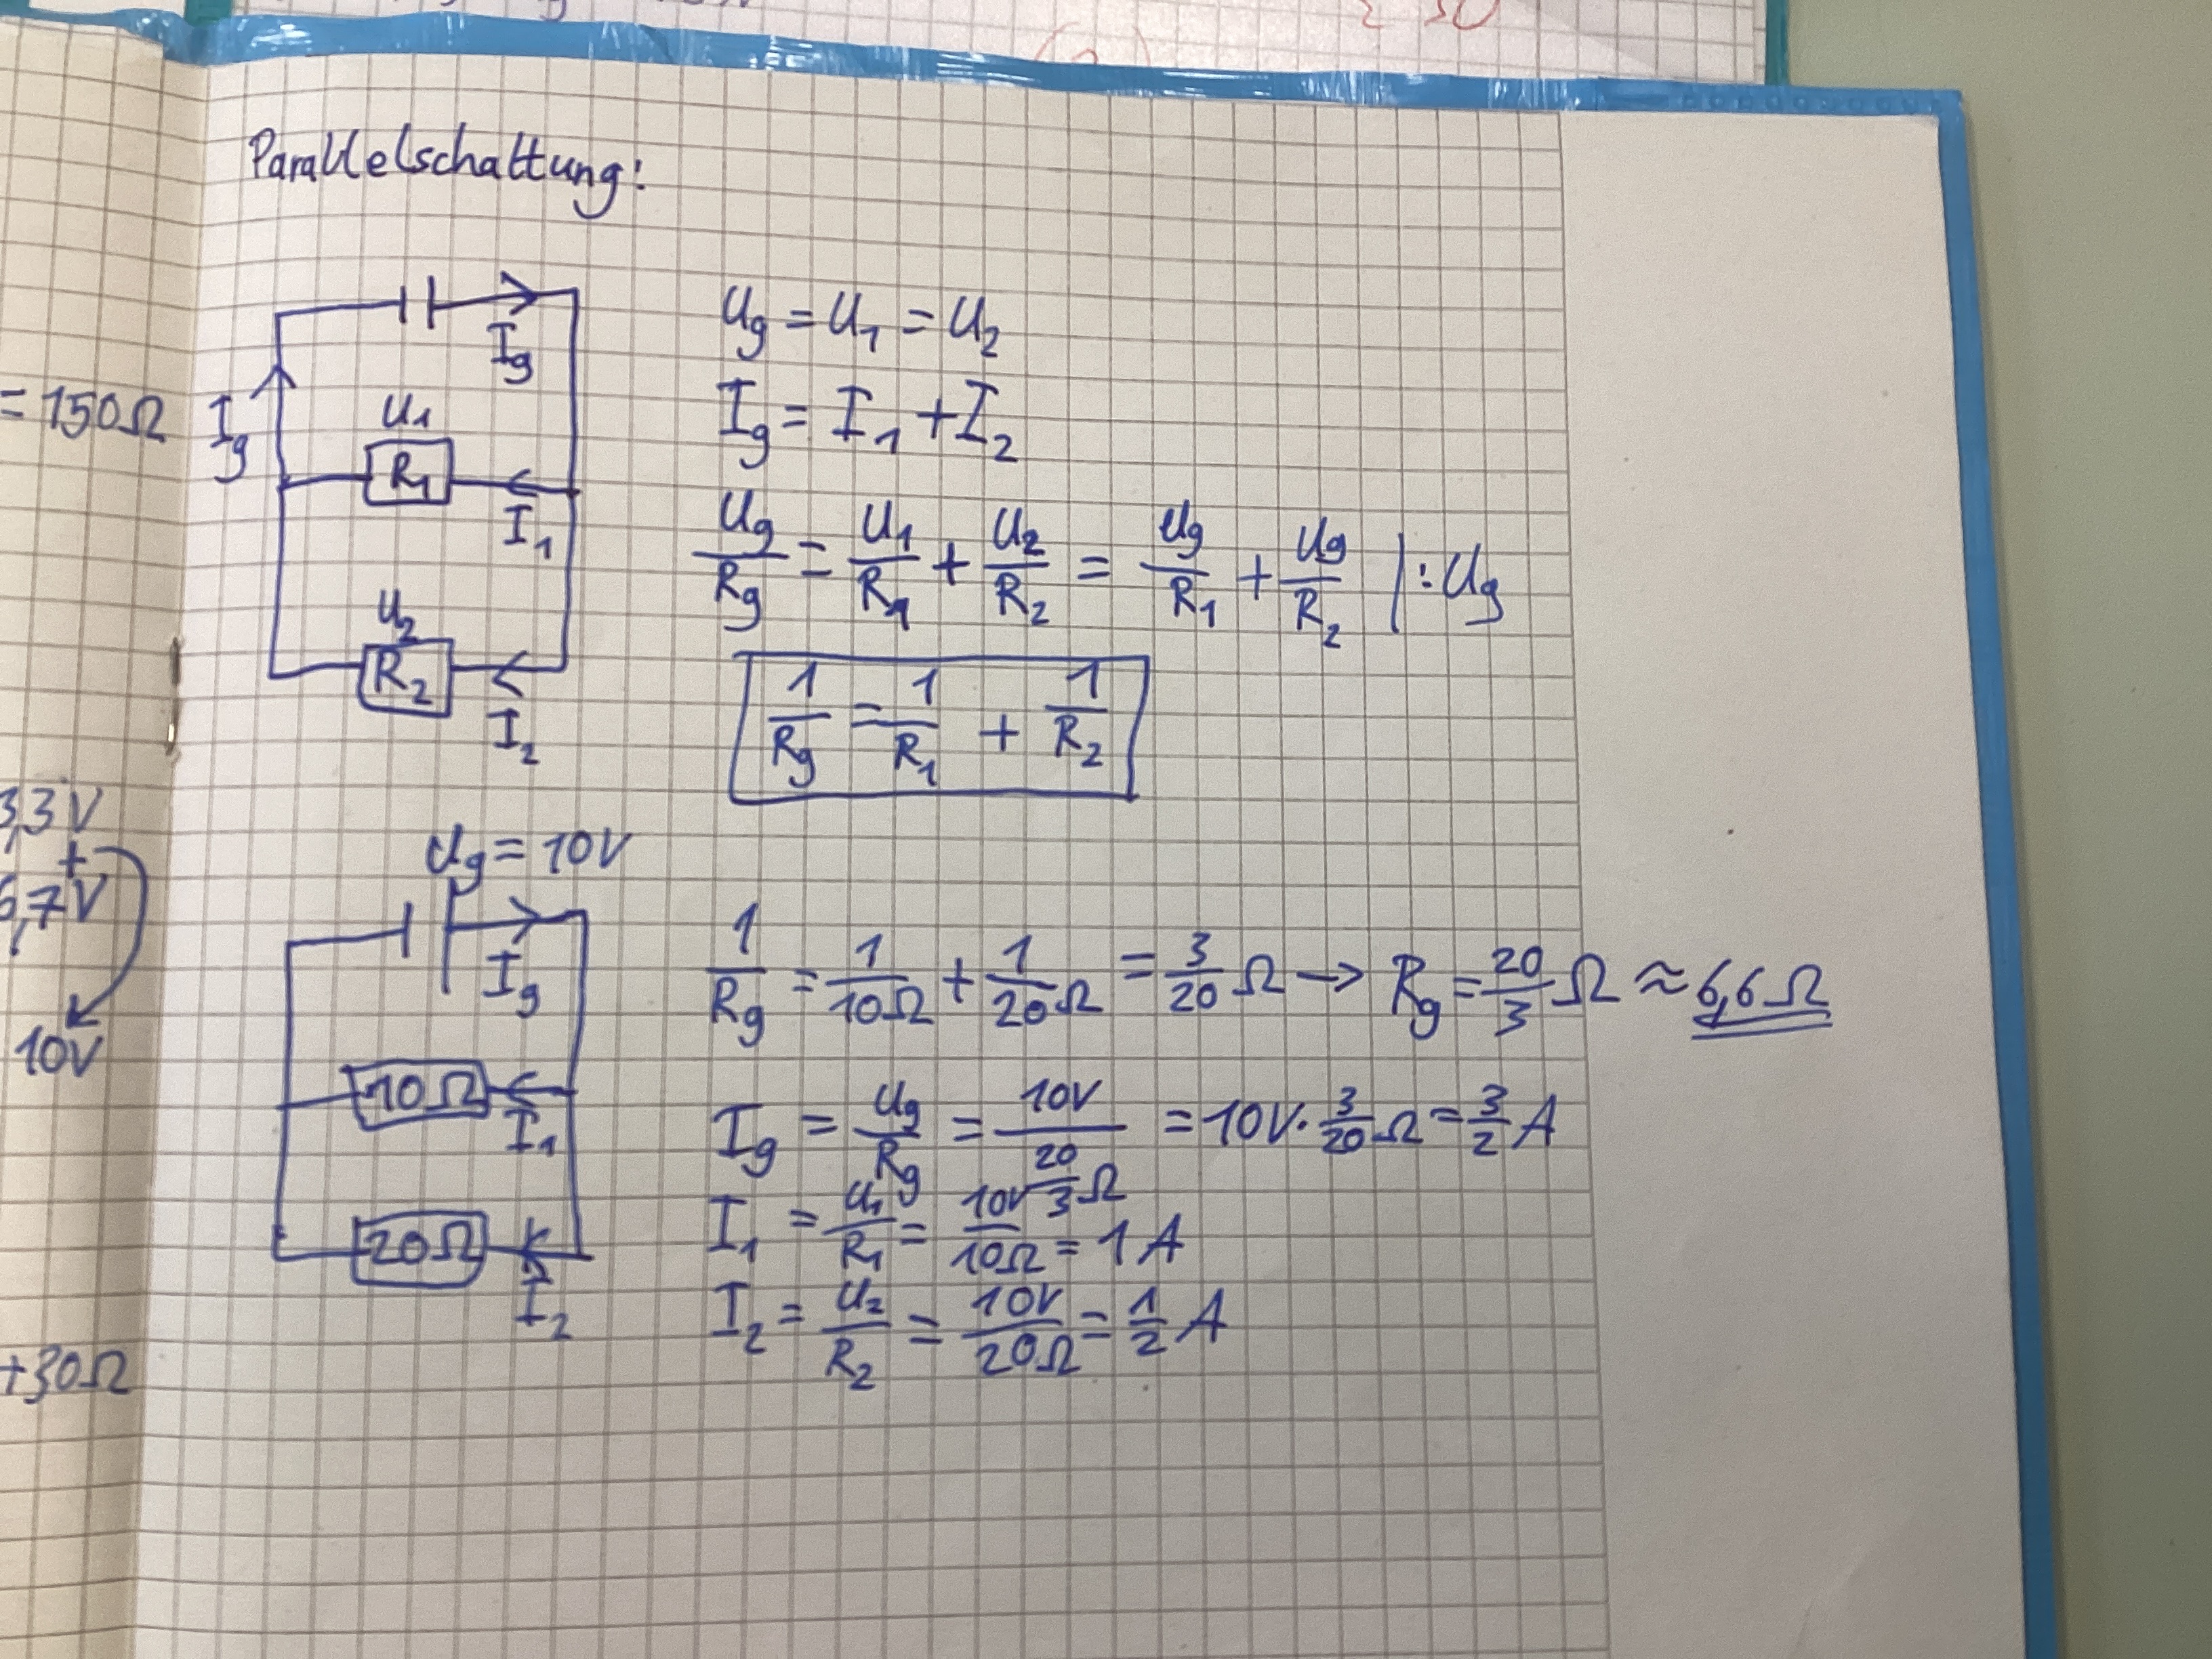 Parallelschaltung:
I_g
U_1
R_1
I_1
I_g
U_2
R_2
I_2
U_g = U_1 = U_2
I_g = I_1 + I_2
U_g/R_g = U_1/R_1 + U_2/R_2 = U_g/R_1 + U_g/R_2 | : U_g
1/R_g = 1/R_1 + 1/R_2
U_g = 10V
I_g
10Ω
I_1
20Ω
I_2
1/R_g = 1/10Ω + 1/20Ω = 3/20 Ω → R_g = 20/3 Ω ≈ 6,6Ω
I_g = U_g/R_g = 10V/(20/3 Ω) = 10V · 3/20 Ω = 3/2 A
I_1 = U_1/R_1 = 10V/10Ω = 1A
I_2 = U_2/R_2 = 10V/20Ω = 1/2 A
= 150Ω
3,3V
+
6,7V
10V
+30Ω